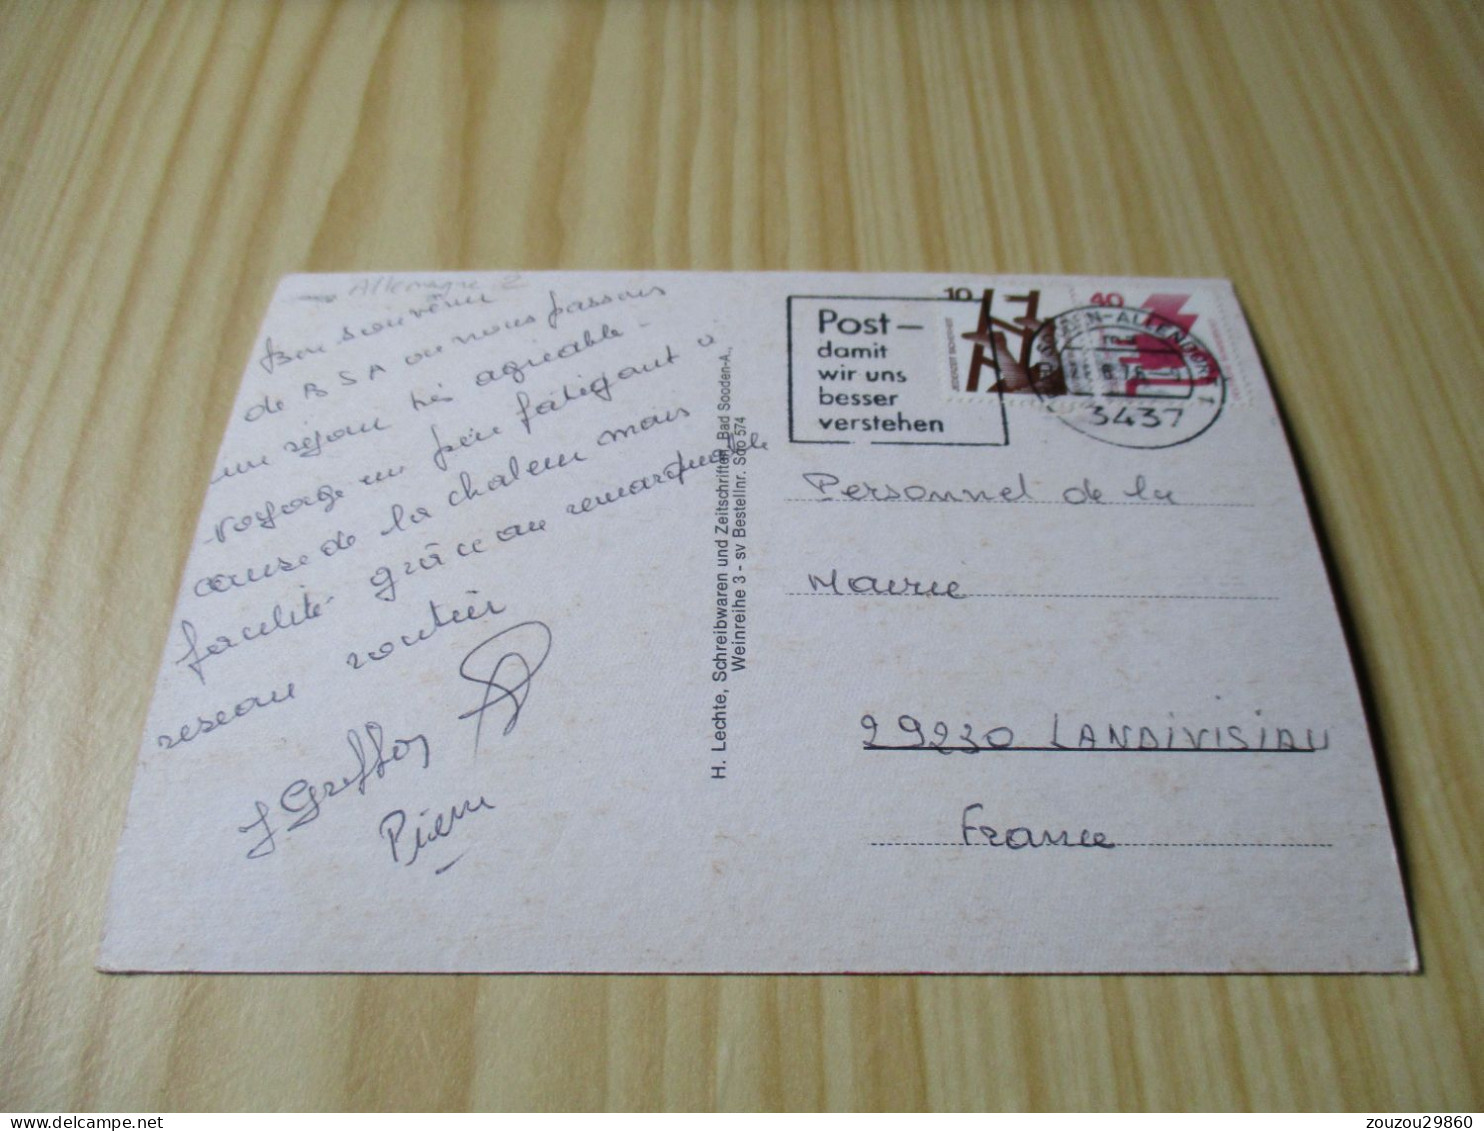 Allemagne 2
Bon souvenir
de B S A ou nous passons
un séjour très agréable -
voyage un peu fatigant à
cause de la chaleur mais
facilité grâce au remarquable
reseau routier
J. Greffoz
Pierre
H. Lechte, Schreibwaren und Zeitschriften, Bad Sooden-A.,
Weinreihe 3 - sv Bestellnr. Soo 574
Post —
damit
wir uns
besser
verstehen
10
JEDERZEIT SICHERHEIT
40
SOODEN-ALLENDORF 1
3437
Personnel de la
Mairie
29230 LANDIVISIAU
France
zouzou29860